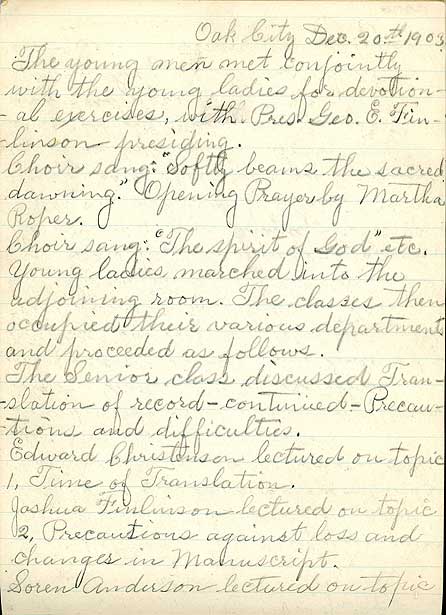 Oak City Dec. 20th 1903
The young men met conjointly
with the young ladies for devotion-
-al exercises, with Pres. Geo. E. Fin-
-linson presiding.
Choir sang: "Softly beams the sacred
dawning." Opening Prayer by Martha
Roper.
Choir sang: "The spirit of God" etc.
Young ladies marched into the
adjoining room. The classes then
occupied their various departments
and proceeded as follows.
The Senior class discussed Tran-
-slation of record - continued - Precau-
-tions and difficulties.
Edward Christenson lectured on topic
1, Time of Translation.
Joshua Finlinson lectured on topic
2, Precautions against loss and
changes in Manuscript.
Soren Anderson lectured on topic